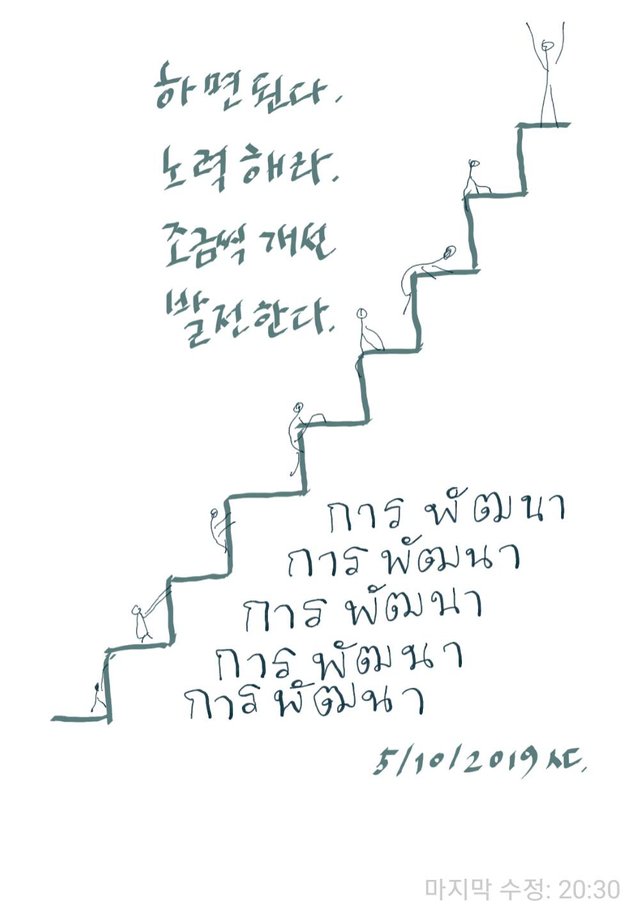 하면 된다.
노력해라.
조금씩 개선
발전한다.
การ พัฒนา
การ พัฒนา
การ พัฒนา
การ พัฒนา
การ พัฒนา
5/10/2019 AC.
마지막 수정: 20:30